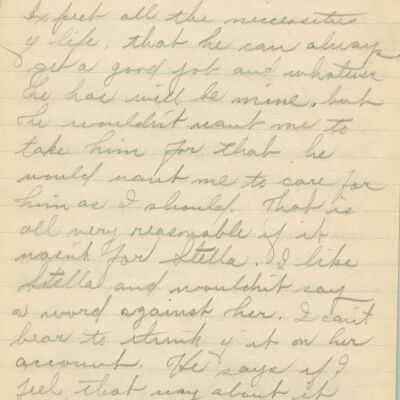 Expect all the necessities
of life, that he can always
get a good job and whatever
he has will be mine, but
he wouldn't want me to
take him for that he
would want me to care for
him as I should. That is
all very reasonable if it
wasn't for Stella. I like
Stella and wouldn't say
a word against her. I can't
bear to think of it on her
account. He says if I
feel that way about it